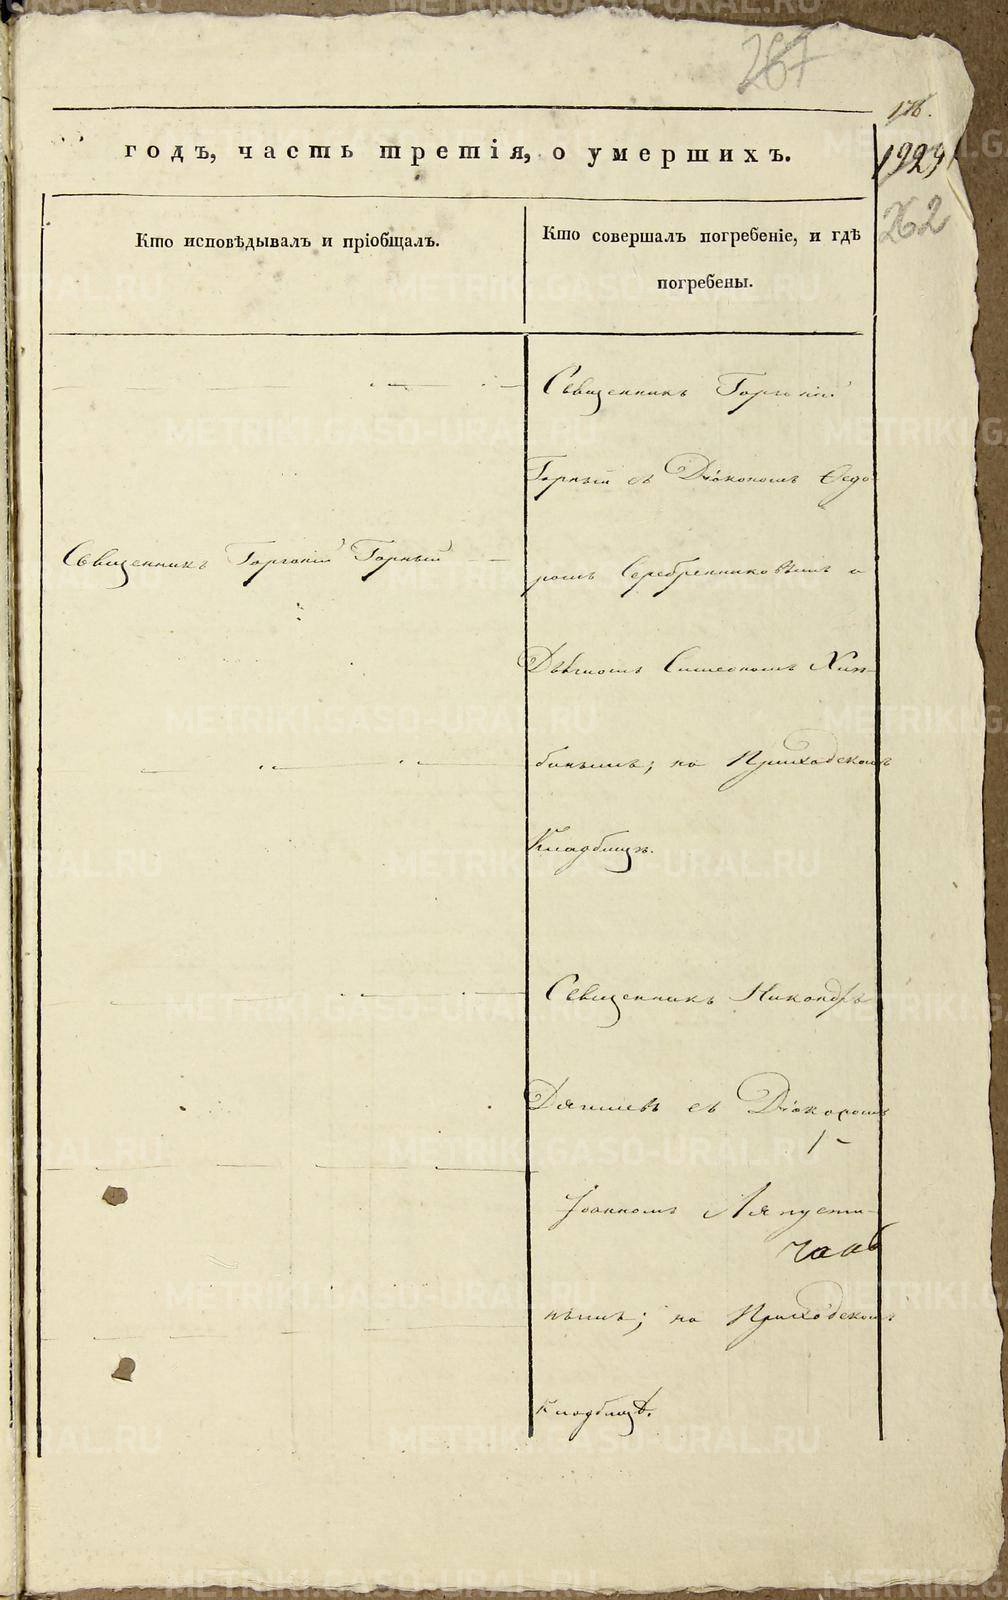 267
176.
годъ, часть третія, о умершихъ.
1929
262
Кто исповѣдывалъ и пріобщалъ.
Кто совершалъ погребеніе, и гдѣ
погребены.
Священникъ Горгоній
Горный съ Діакономъ Ѳедо-
Священникъ Горгоній Горный
ромъ Серебренниковымъ и
Дьячкомъ Симеономъ
бинымъ; на Приходскомъ
Кладбищѣ.
Священникъ Никандръ
съ Діакономъ
Іоанномъ Ляпусти-
нымъ; на Приходскомъ
Кладбищѣ.
METRIKI.GASO-URAL.RU